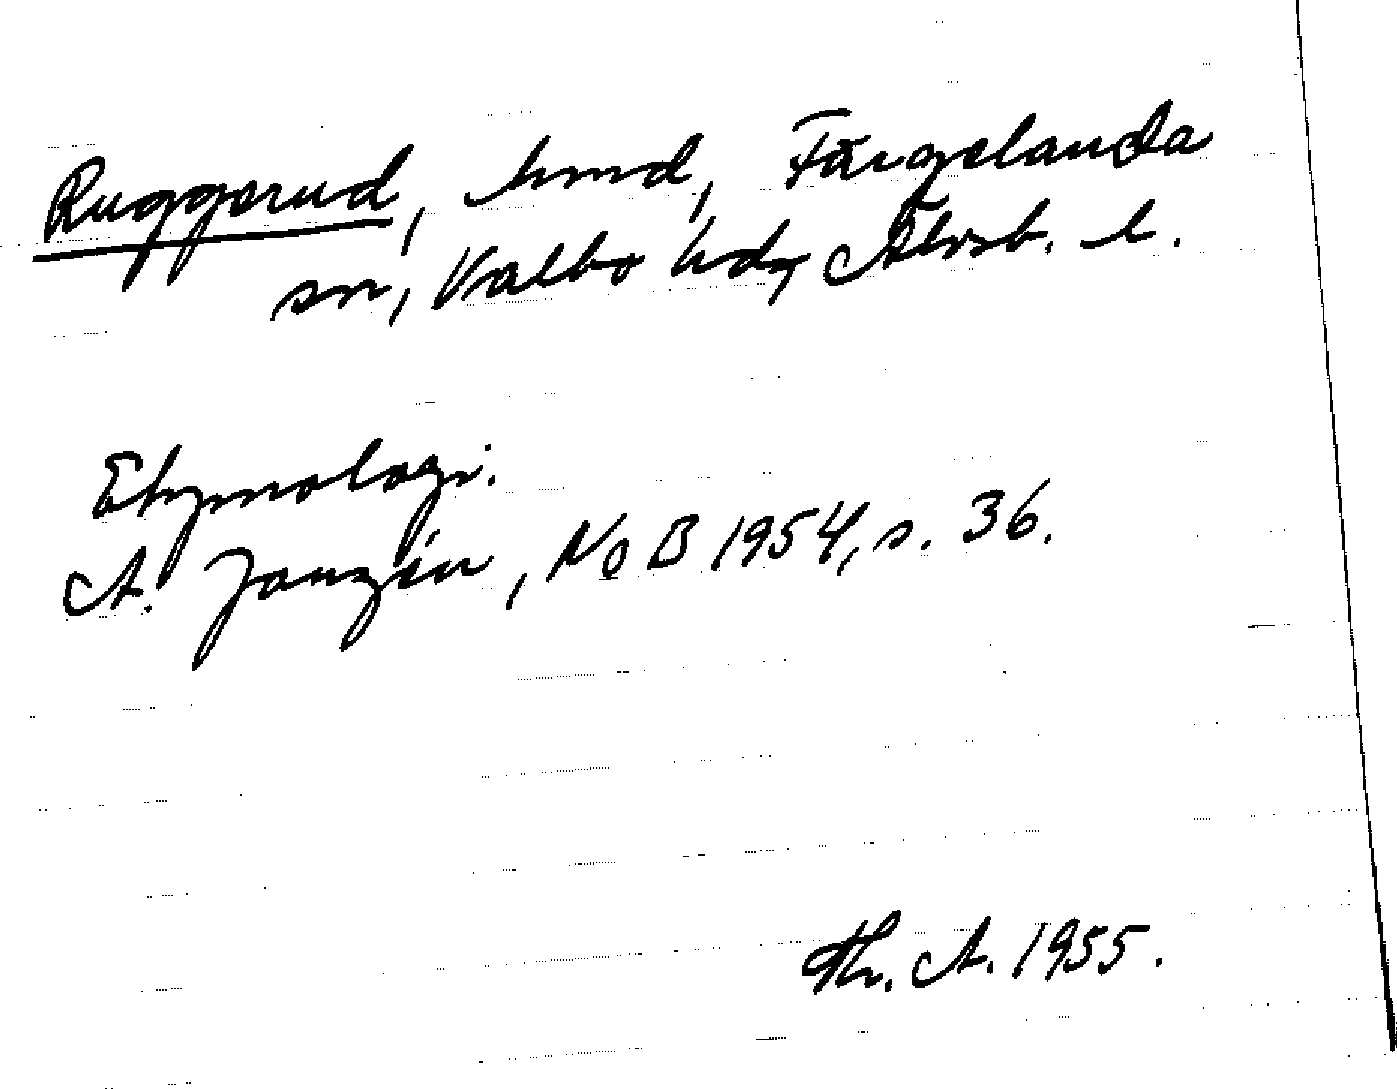 Ruggerud, hmd, Färgelanda
sn, Valbo hd, Älvsb. l.
Etymologi.
A. Janzén, NoB 1954, s. 36.
Th. A. 1955.